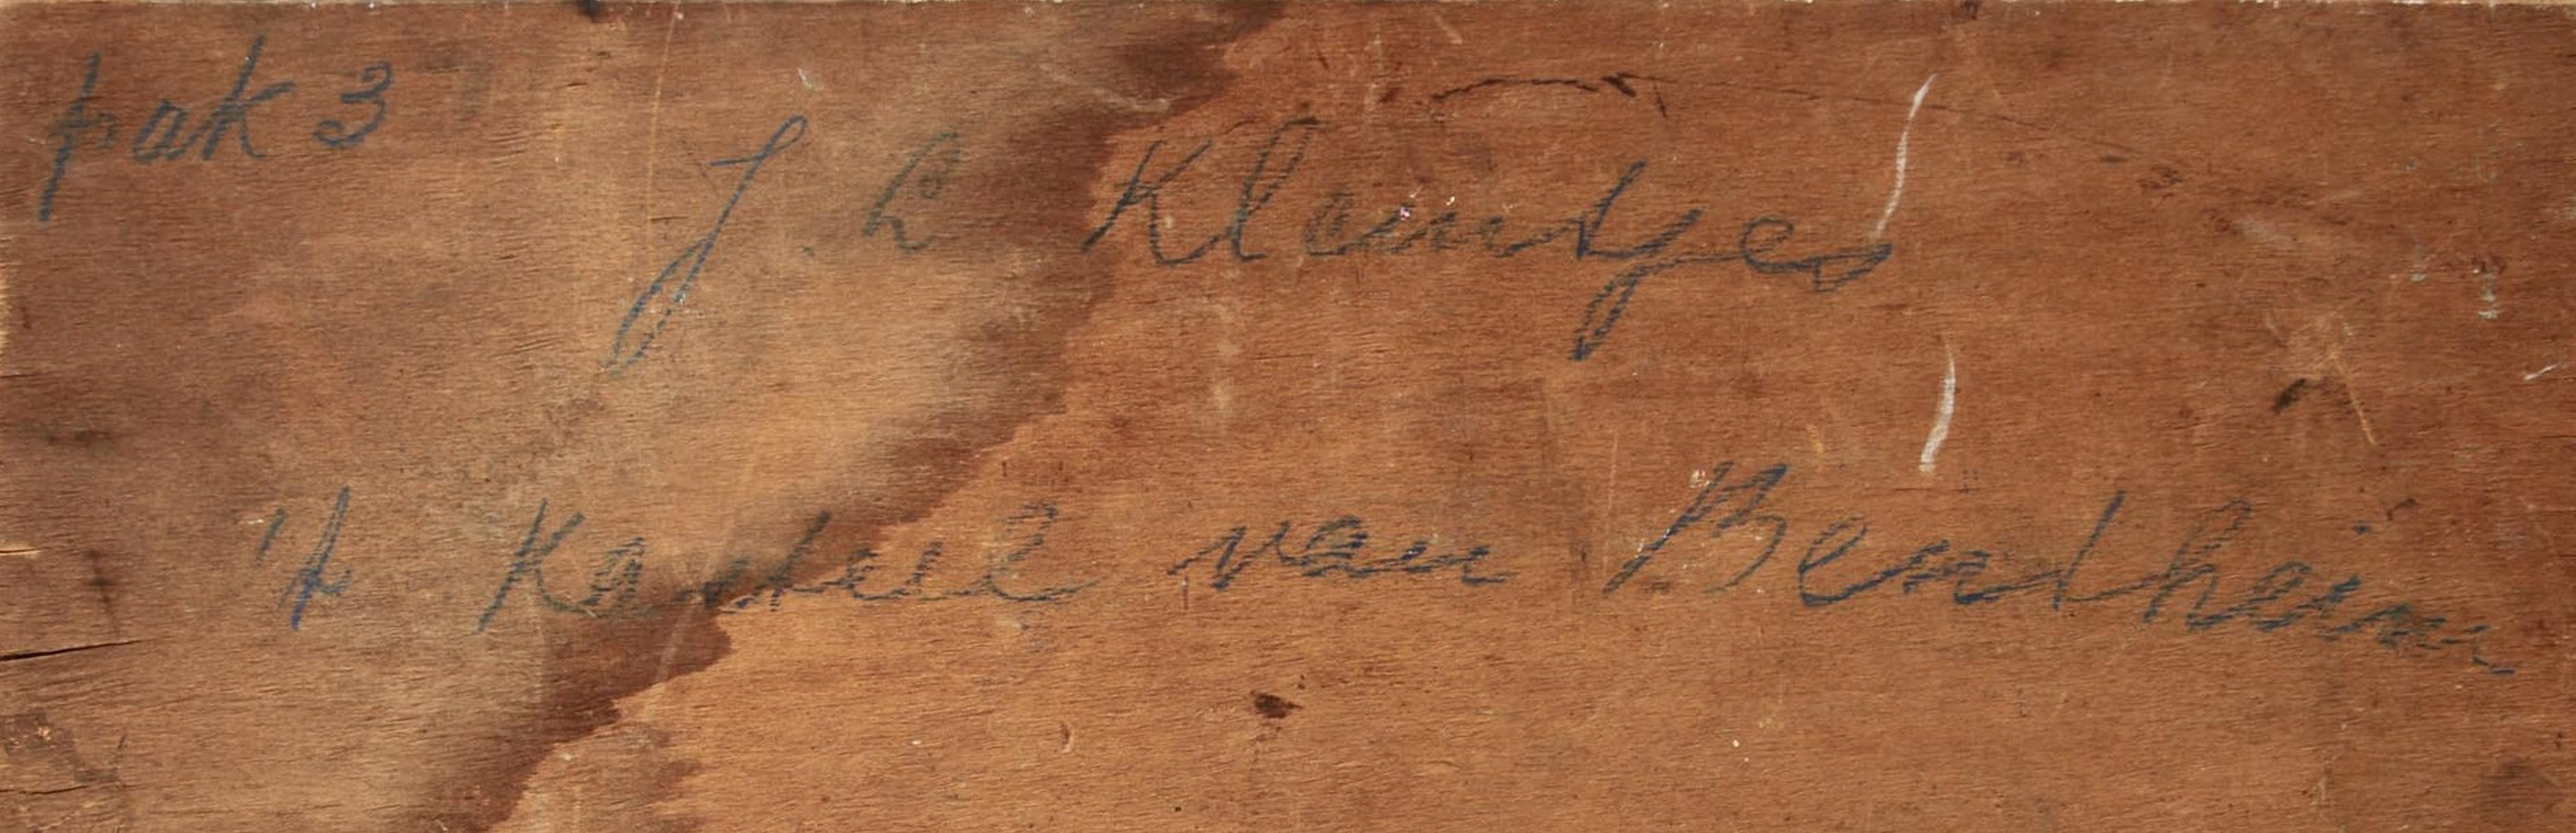 pak 3
J. L Kleintjes
't Kasteel van Bentheim